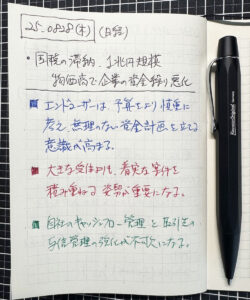 25.0828(木) (日経)
・国税の滞納、1兆円規模
物価高で企業の資金繰り悪化
エンドユーザーは、予算をより慎重に
考え、無理のない資金計画を立てる
意識が高まる。
大きな受注よりも、着実な案件を
積み重ねる姿勢が重要になる。
自社のキャッシュフロー管理と取引先の
与信管理の強化が不可欠になる。